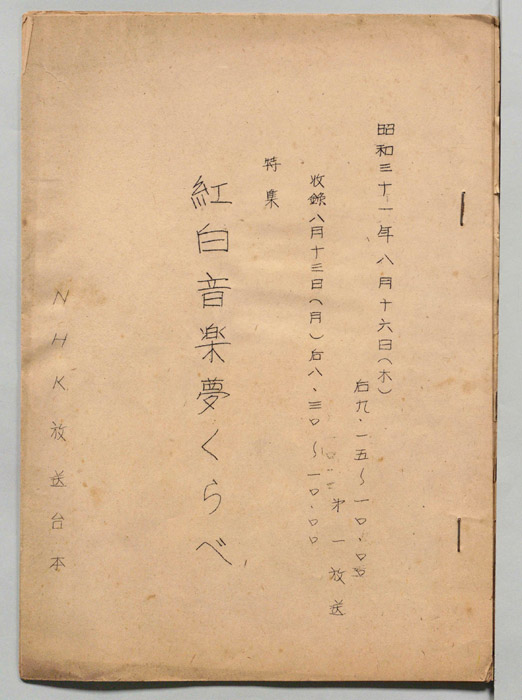 昭和三十一年八月十六日(木)
后九・一五~一〇、〇
第一放送
收錄八月十三日(月)后八・三〇~一〇・〇〇
特集
紅白音楽夢くらべ
NHK放送台本